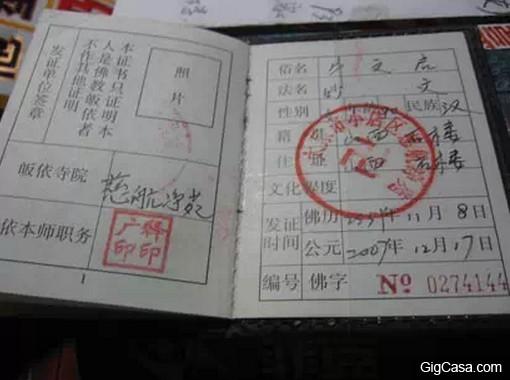 本证书只证明本
人是佛教皈依者
不作其他证明
发证单位签章
照
片
皈依寺院
慈航净苑
依本师职务
广释
印印
1
俗名 牛文启
法名 妙文
性别 民族 汉
籍贯 山西 石楼
住址 山西 石楼
文化程度
发证时间
佛历 2551年11月8日
公元 2007年12月17日
编号 佛字 № 0274144
GigCasa.com